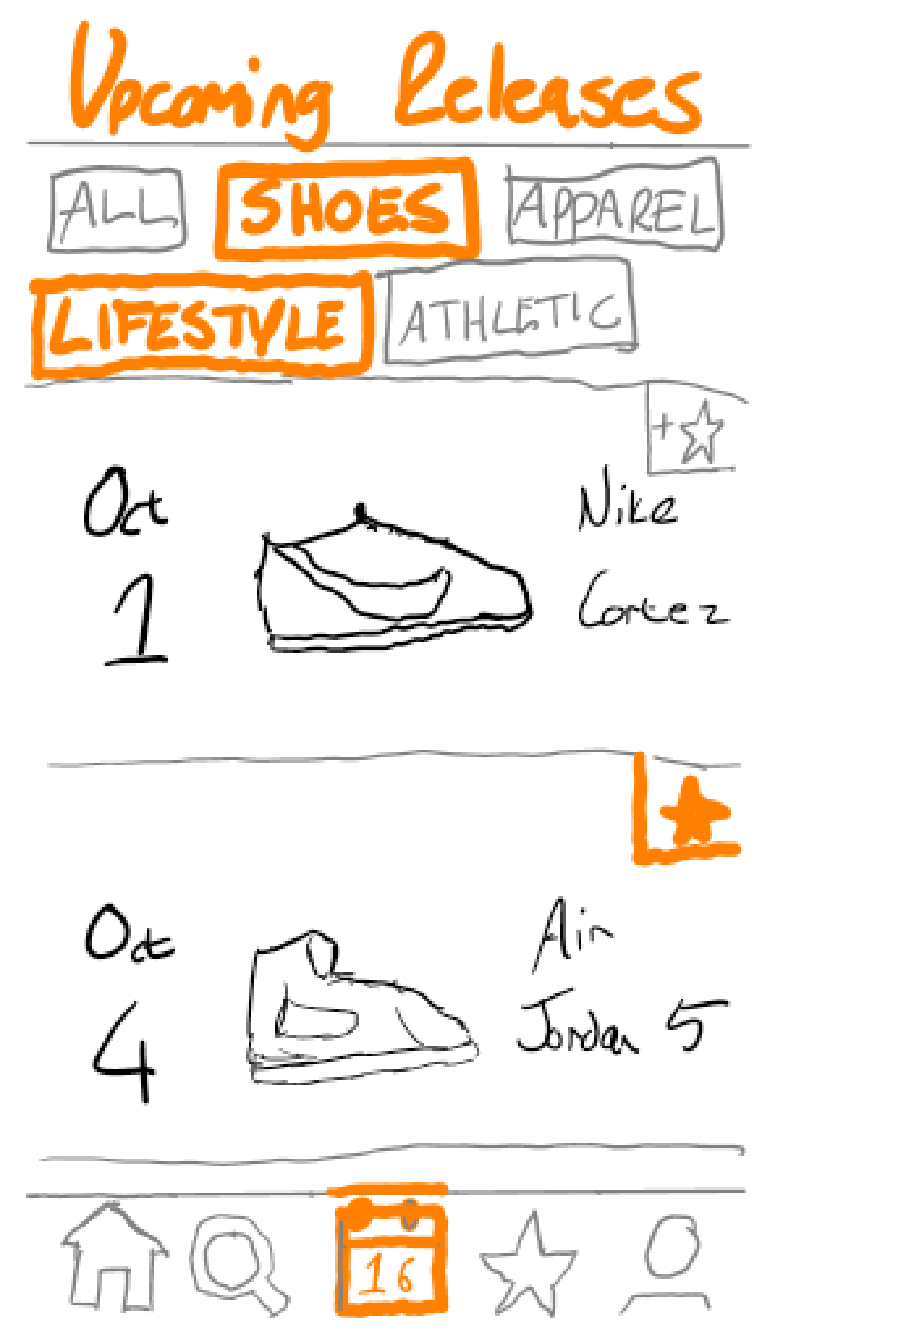 Upcoming Releases
ALL SHOES APPAREL
LIFESTYLE ATHLETIC
+
Oct
1
Nike
Cortez
Oct
4
Air
Jordan 5
16